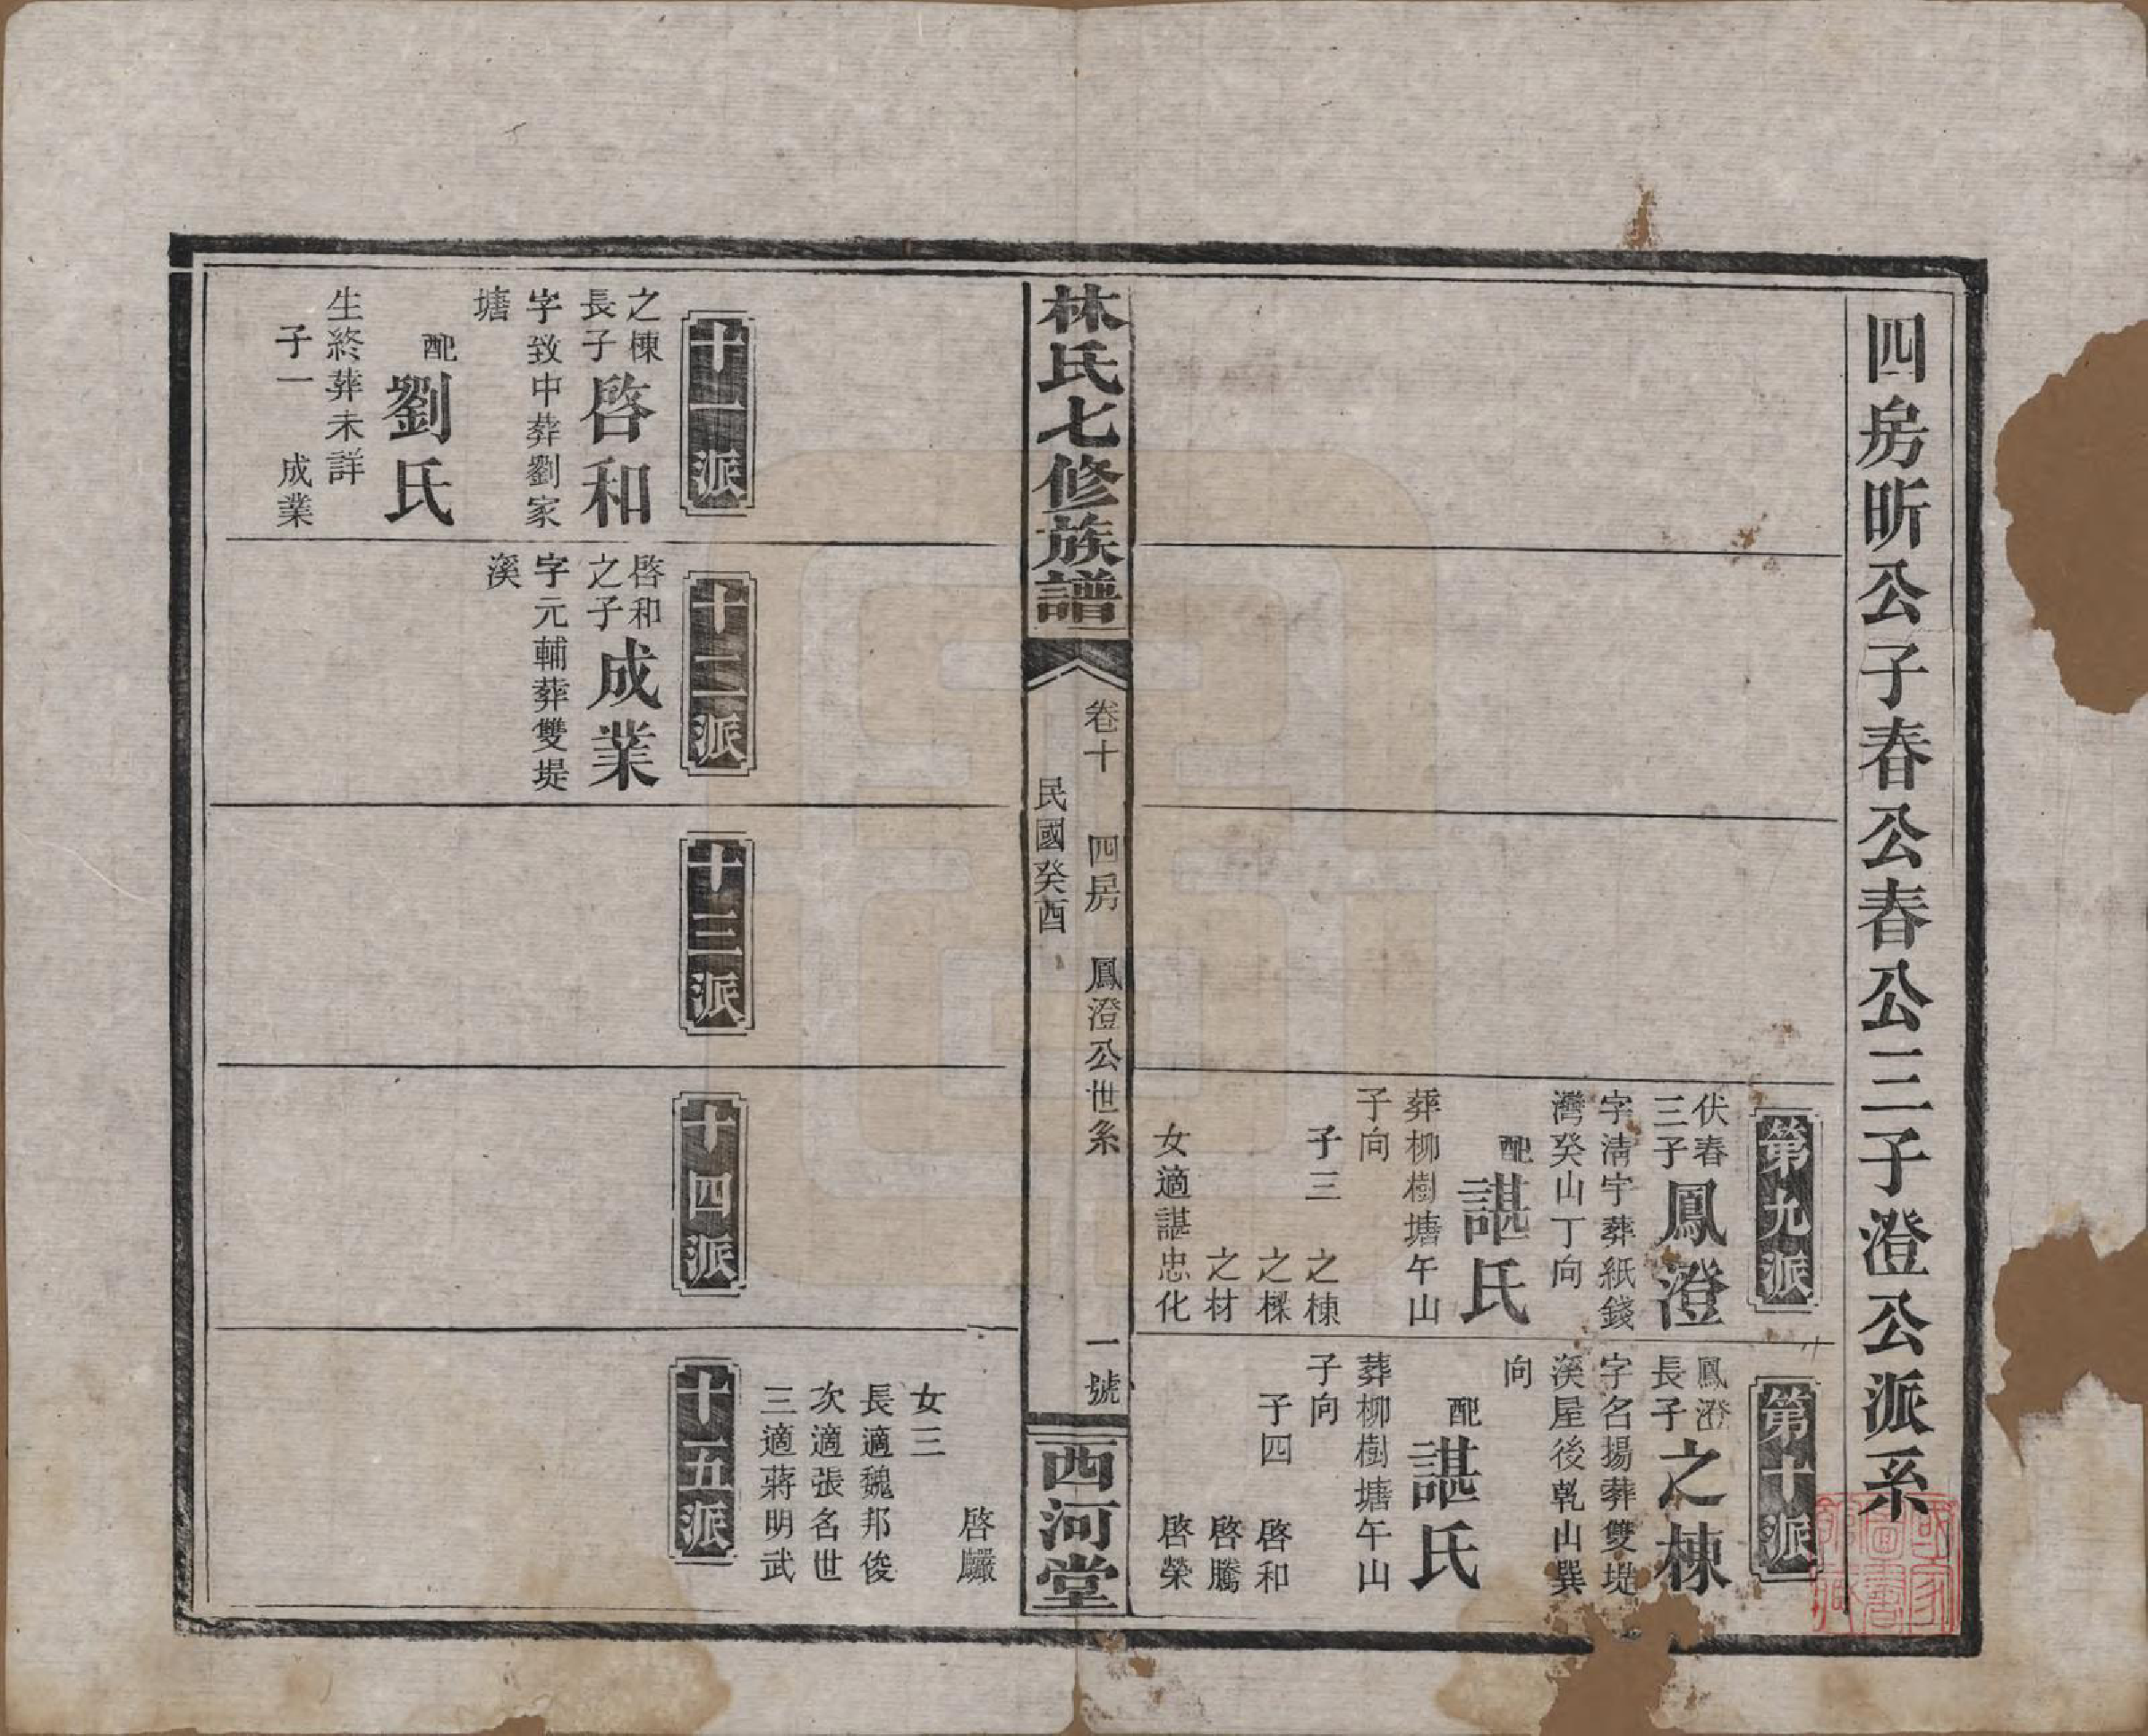 四房昕公子春公春公三子澄公派系
第九派
伏春
三子
鳳澄
字清宇葬紙錢
灣癸山丁向
配
諶氏
葬柳樹塘午山
子向
子三 之棟
之樑
之材
女適諶忠化
第十派
鳳澄
長子
之棟
字名揚葬雙堤
溪屋後乾山巽
向
配
諶氏
葬柳樹塘午山
子向
子四 啓和
啓騰
啓榮
林氏七修族譜
卷十 四房 鳳澄公世系 一號
民國癸酉
西河堂
啓驪
女三
長適魏邦俊
次適張名世
三適蔣明武
十一派
之棟
長子
啓和
字致中葬劉家
塘
配
劉氏
生終葬未詳
子一 成業
十二派
啓和
之子
成業
字元輔葬雙堤
溪
十三派
十四派
十五派